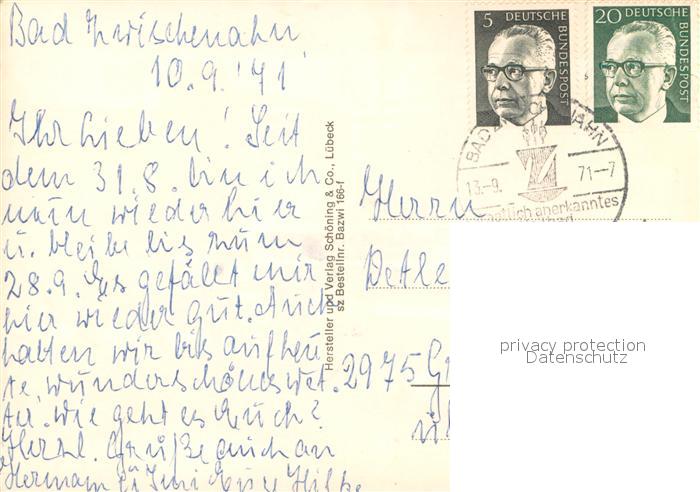 Bad Zwischenahn
10.9.'71
Ihr Lieben! Seit
dem 31.8. bin ich
nun wieder hier
u. bleibe bis zum
28.9. Es gefällt mir
hier wieder gut. Auch
hatten wir bis auf heu
te, wunderschönes Wet.
ter. Wie geht es Euch?
Herzl. Grüße auch an
Hermann Eure Hilke
Hersteller und Verlag Schöning & Co., Lübeck
sz Bestellnr. Bazwi 166-f
5 DEUTSCHE BUNDESPOST
20 DEUTSCHE BUNDESPOST
BAD ZWISCHENAHN
13.-9. 71-7
staatlich anerkanntes
Herrn
Detle
2975
privacy protection
Datenschutz